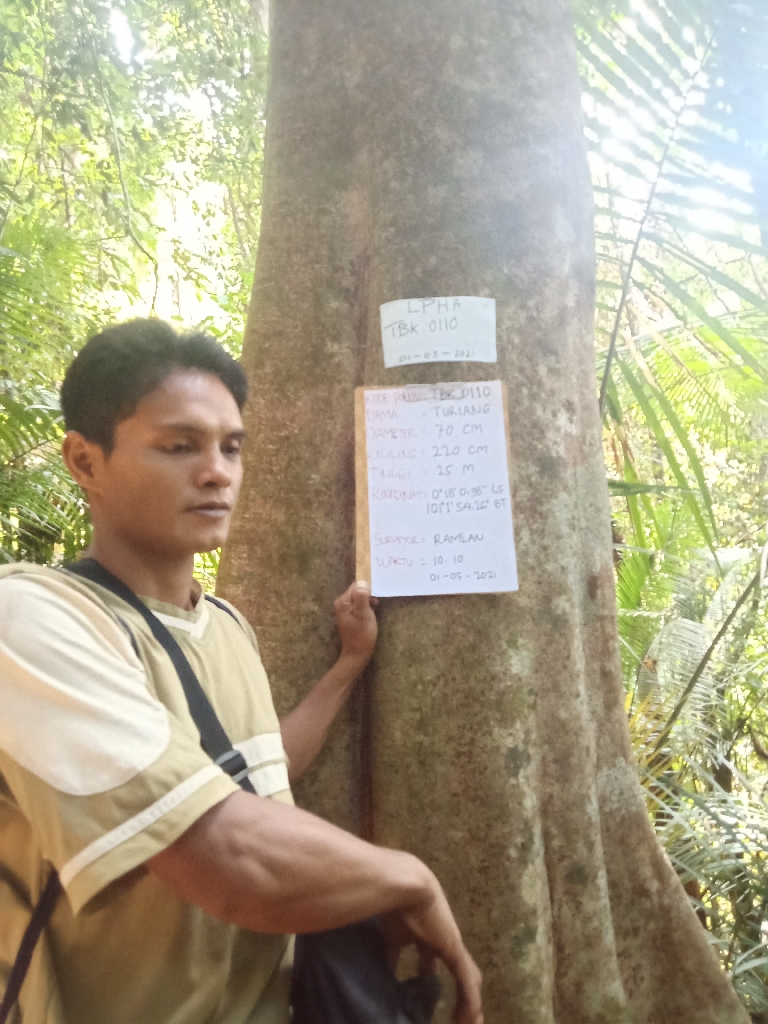 LPHA
TBK 0110
01-05-2021
KODE POHON TBK 0110
NAMA = TURIANG
DIAMETER = 70 CM
KELILING = 220 CM
TINGGI = 25 M
KOORDINAT = 0°18' 0.96" LS
101°1' 54.26" BT
SURVEYOR = RAMLAN
WAKTU = 10.10
01-05-2021